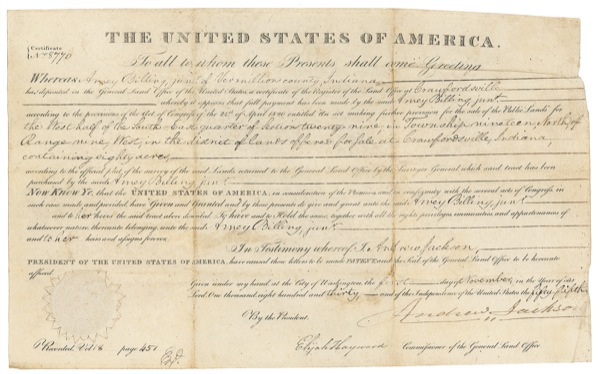 THE UNITED STATES OF AMERICA.
Certificate
No. 8770
To all to whom these Presents shall come Greeting
Whereas Amey Billing, junr. of Vermillion county, Indiana,
has deposited in the General Land Office of the United States, a certificate of the Register of the Land Office at Crawfordsville
whereby it appears that full payment has been made by the said Amey Billing junr.
according to the provisions of the Act of Congress of the 24th of April 1820 entitled An act making further provision for the sale of the Public Lands for
the West half of the South East quarter of section twenty nine, in Township nineteen North, of
Range nine, West, in the district of lands offered for sale at Crawfordsville, Indiana,
containing eighty acres,
according to the official plat of the survey of the said Lands returned to the General Land Office by the Surveyor General which said tract has been
purchased by the said Amey Billing junr.
NOW KNOW YE, that the UNITED STATES OF AMERICA, in consideration of the Premises and in conformity with the several acts of Congress in
such case made and provided, Have Given and Granted and by these presents do give and grant unto the said Amey Billing, junr.
and to her heirs the said tract above described To have and to Hold the same, together with all the rights privileges immunities and appurtenances of
whatsoever nature thereunto belonging, unto the said Amey Billing, junr.
and to her heirs and assigns forever.
In Testimony whereof I, Andrew Jackson,
PRESIDENT OF THE UNITED STATES OF AMERICA, have caused these letters to be made PATENT and the Seal of the General Land Office to be hereunto
affixed
Given under my hand, at the City of Washington, the first day of November, in the Year of our
Lord One thousand eight hundred and thirty, and of the Independence of the United States the fifty fifth
By the President.
Andrew Jackson
Elijah Hayward Commissioner of the General Land Office
Recorded, Vol. 8 page 457